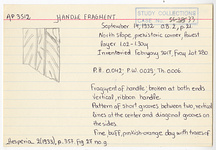 AP 3512 HANDLE FRAGMENT
STUDY COLLECTIONS
September 14, 1932
North slope, prehistoric corner, lowest
layer 1.02-1.30 m
Inventoried February 2017, from Lot 280
P.H. 0.042; P.W. 0.025; Th. 0.006.
Fragment of handle; broken at both ends
vertical, ribbon handle.
Pattern of short grooves between two vertical
lines at the center and diagonal grooves on
the sides.
Fine, buff, pinkish orange clay with traces of
Hesperia 2 (1933), p. 357, Fig 28